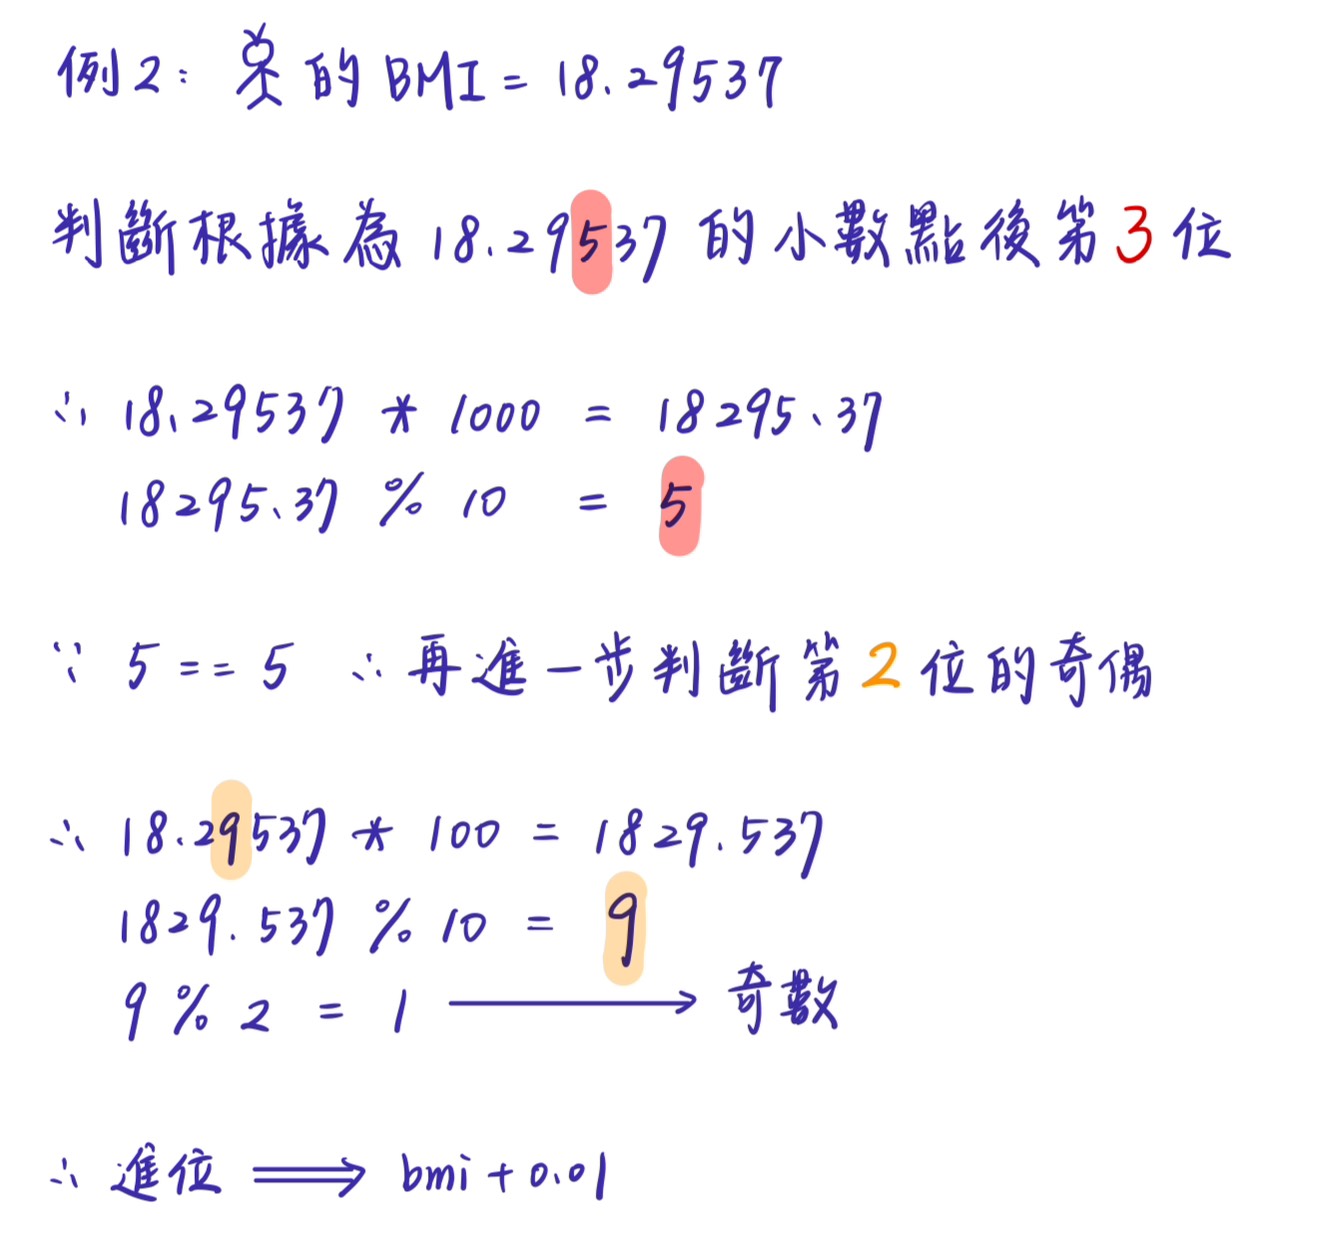 例2: 的BMI = 18.29537
判斷根據為 18.29537 的小數點後第3位
∴ 18.29537 * 1000 = 18295.37
18295.37 % 10 = 5
∵ 5 == 5 ∴ 再進一步判斷第2位的奇偶
∴ 18.29537 * 100 = 1829.537
1829.537 % 10 = 9
9 % 2 = 1 → 奇數
∴ 進位 ⟹ bmi + 0.01